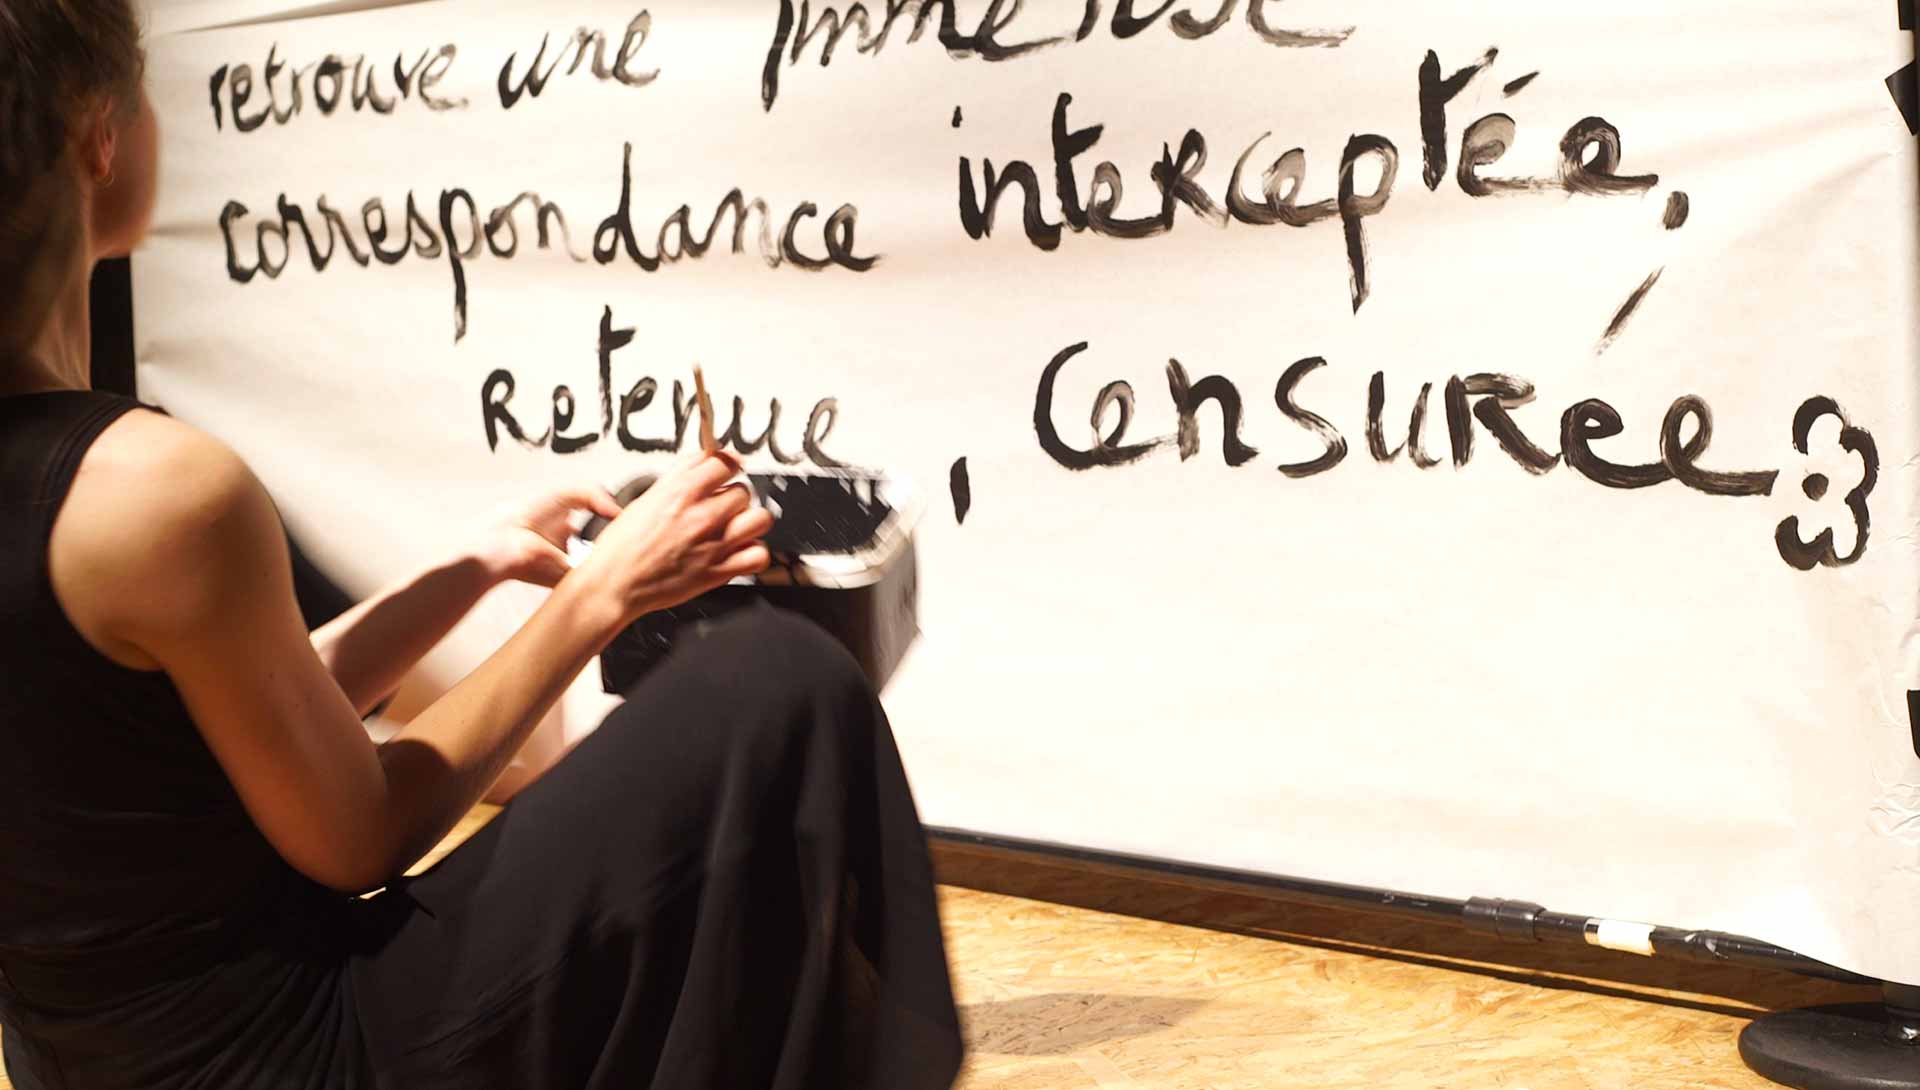 retrouve une immense
correspondance interceptée,
Retenue, Censurée